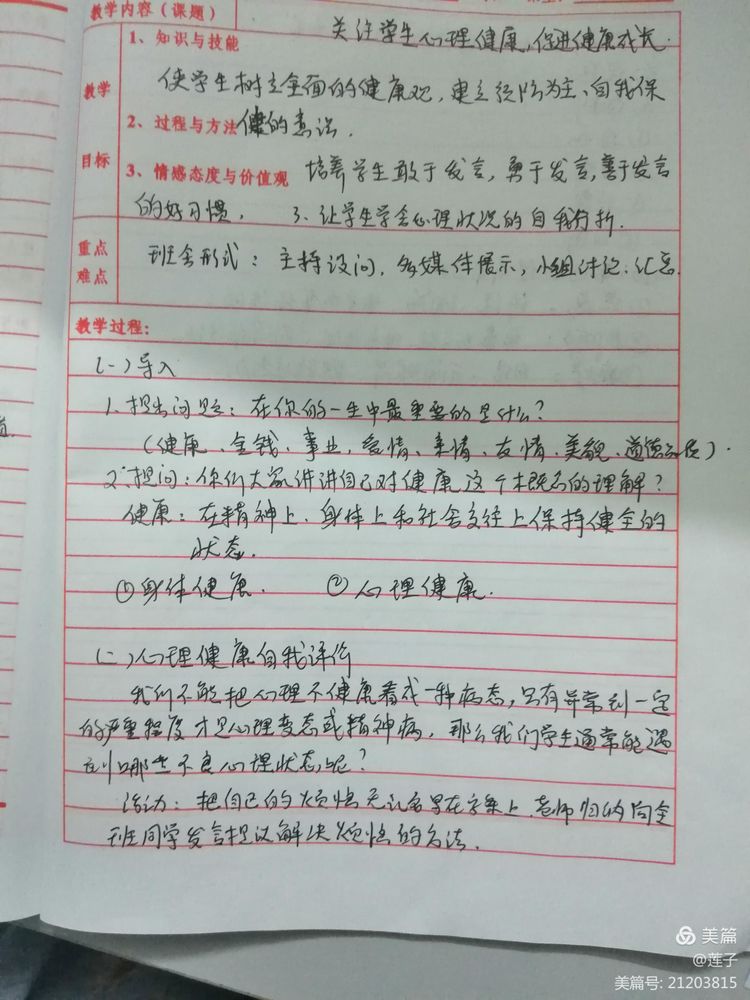 教学内容（课题） 关注学生心理健康，促进健康成长.
教学目标
1、知识与技能
使学生树立全面的健康观，建立预防为主、自我保
2、过程与方法 健的意识.
3、情感态度与价值观 培养学生敢于发言，勇于发言，善于发言
的好习惯. 3、让学生学会心理状况的自我分析.
重点难点
班会形式：主持设问，多媒体展示，小组讨论.汇总.
教学过程：
(一)导入
1、提出问题：在你的一生中最重要的是什么？
(健康、金钱、事业、爱情、亲情、友情、美貌、道德品质).
2、提问：你们大家讲讲自己对健康这个概念的理解？
健康：在精神上、身体上和社会交往上保持健全的
状态.
①身体健康. ②心理健康.
(二)心理健康自我评价
我们不能把心理不健康看成一种病态，只有异常到一定
的严重程度才是心理变态或精神病，那么我们学生通常能遇
到哪些不良心理状态呢？
活动：把自己的烦恼无记名写在字条上，老师归纳向全
班同学发言提议解决烦恼的方法.
美篇
@莲子
美篇号: 21203815